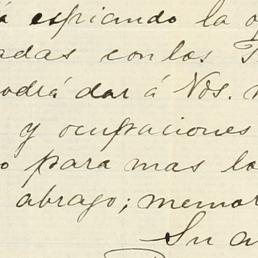 á espiando la
adas con los
odrá dar á Nos.
y ocupaciones
o para mas
abrazo; memor
Su a